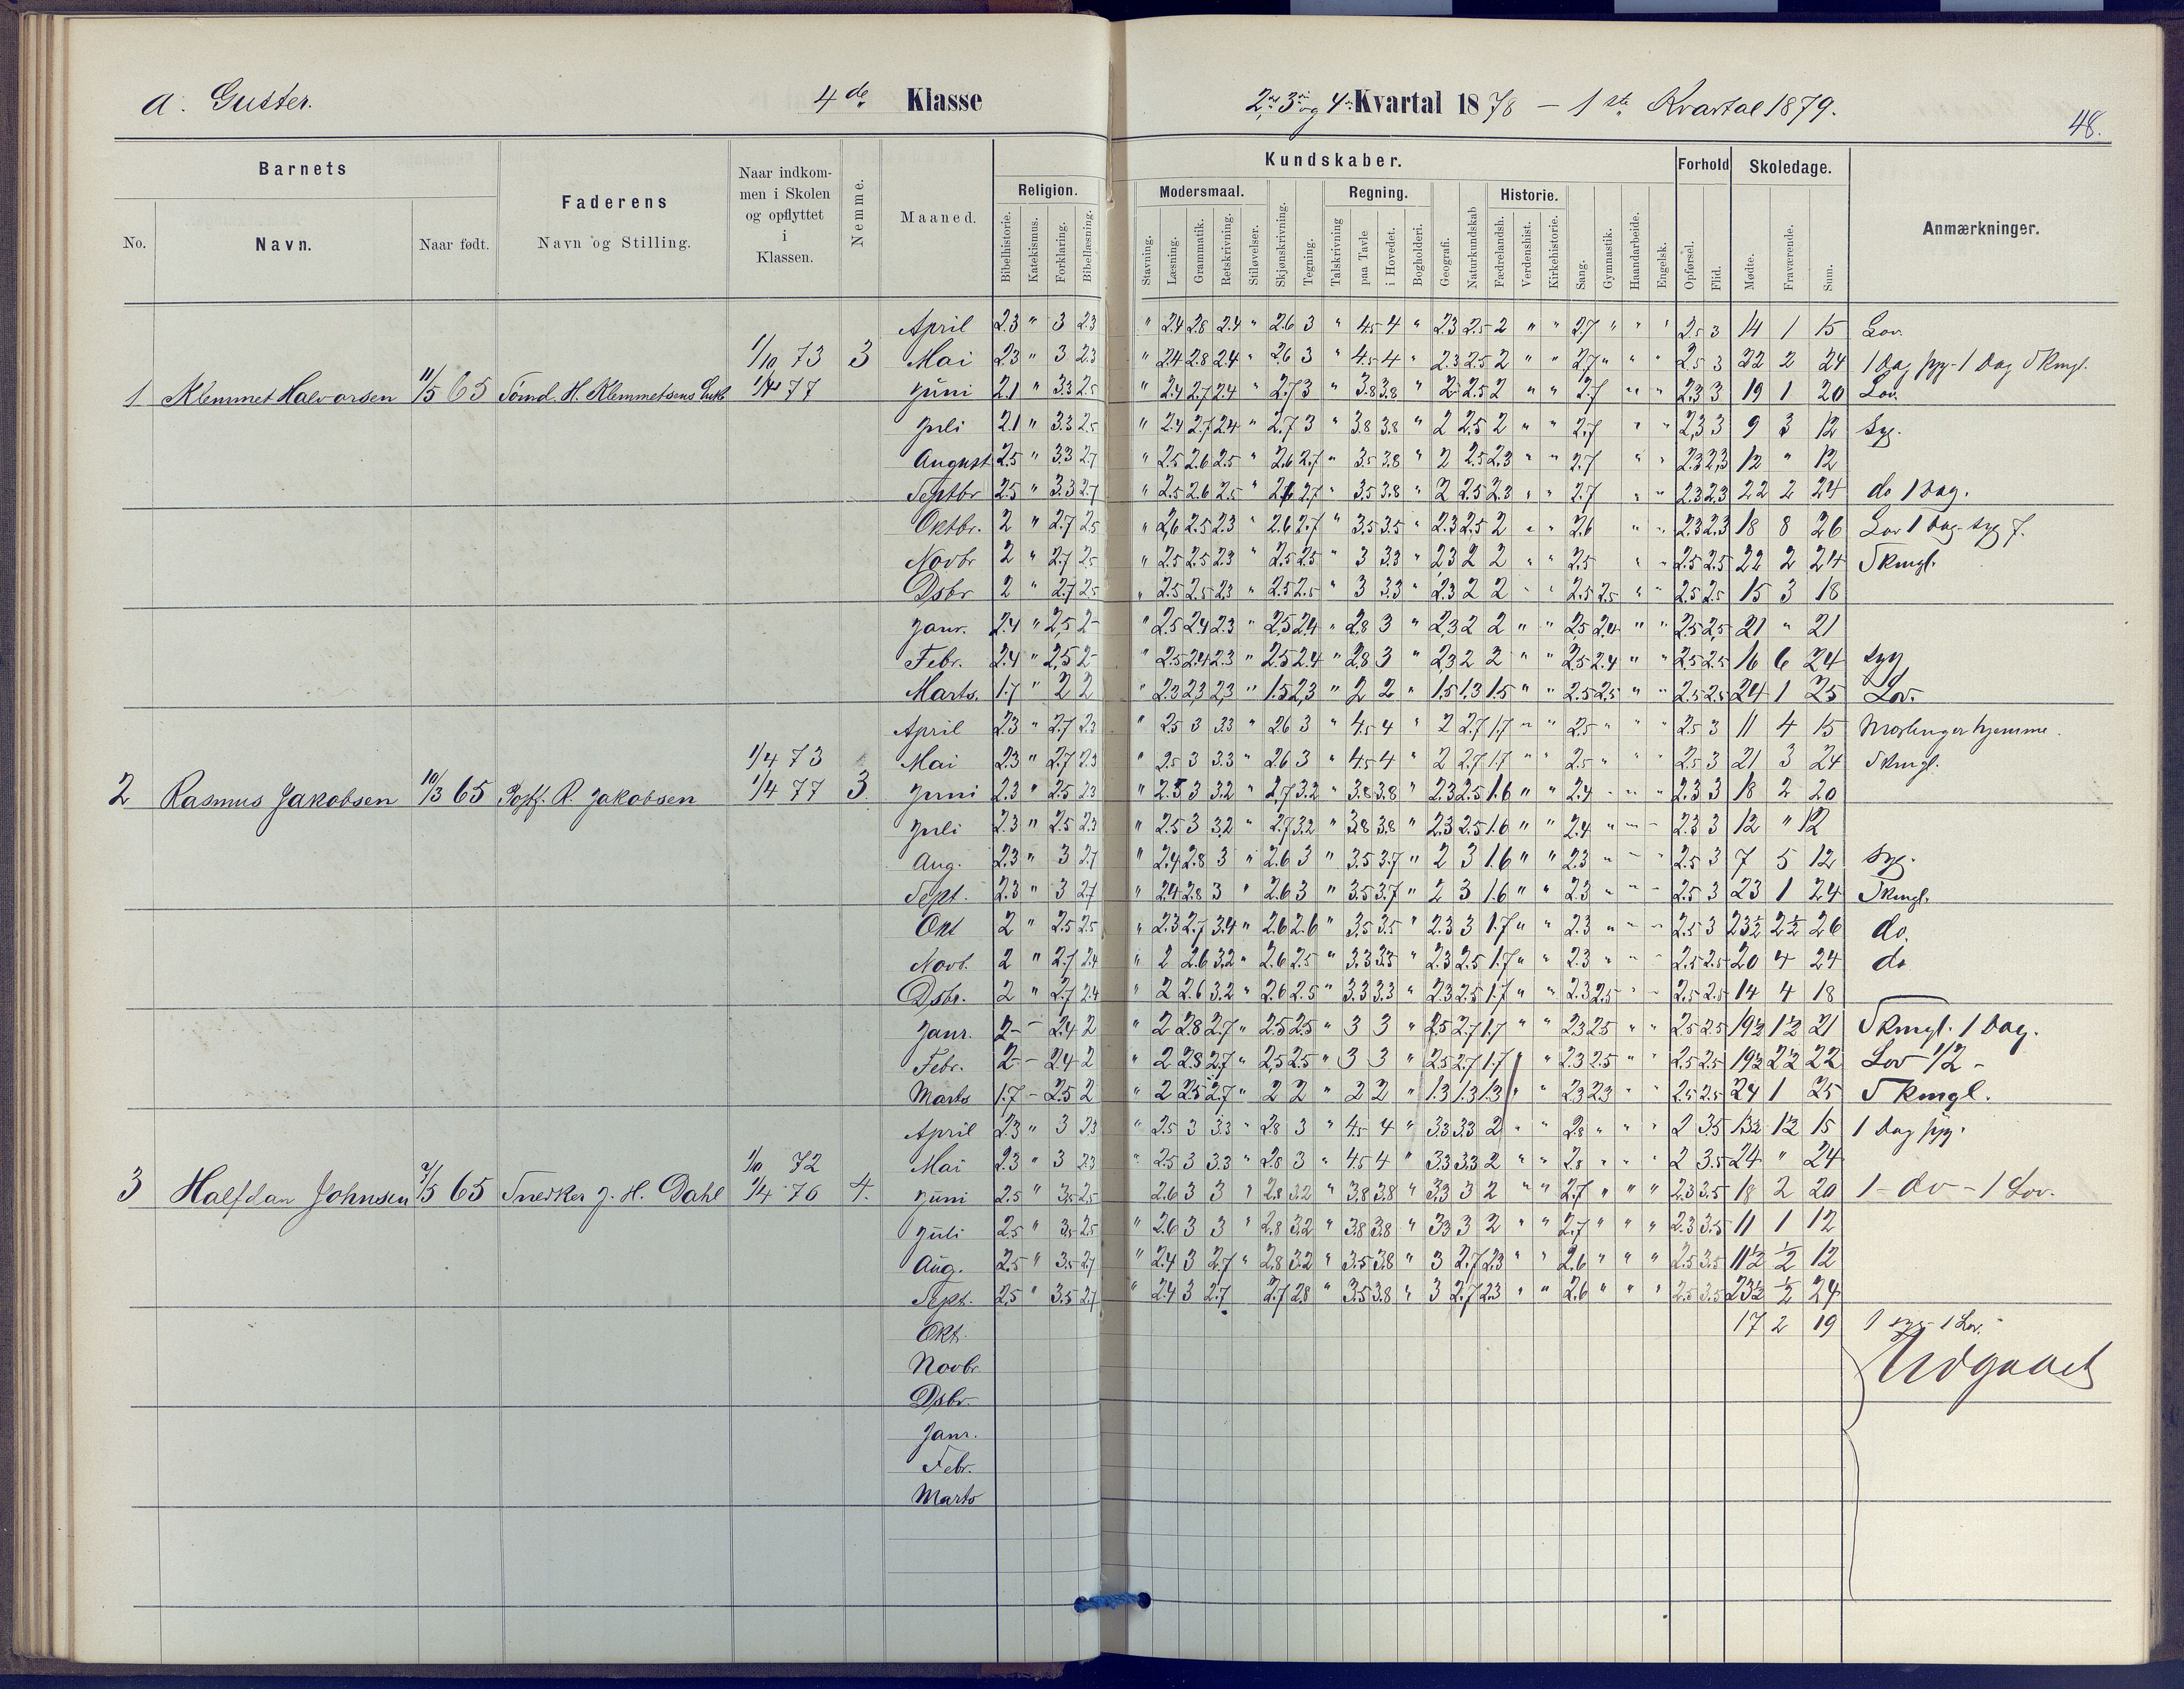 a. Gutter. 4de Klasse 2det, 3die og 4de Kvartal 1878 – 1ste Kvartal 1879.
48.
Barnets
No. Navn. Naar født.
Faderens
Navn og Stilling.
Naar indkom-
men i Skolen
og opflyttet
i
Klassen.
Nemme.
Maaned.
Kundskaber.
Religion. Modersmaal. Regning. Historie.
Bibelhistorie. Katekismus. Forklaring. Bibellæsning. Stavning. Læsning. Grammatik. Retskrivning. Stiløvelser. Skjønskrivning. Tegning. Talskrivning paa Tavle i Hovedet. Bogholderi. Geografi. Naturkundskab Fædrelandsh. Verdenshist. Kirkehistorie. Sang. Gymnastik. Haandarbeide. Engelsk.
Forhold
Opførsel. Flid.
Skoledage.
Mødte. Fraværende. Sum.
Anmærkninger.
April 2.3 " 3 2.3 " 2.4 2.8 2.4 " 2.6 3 " 4.5 4 " 2.3 2.5 2 " " 2.7 " " " 2.5 3 14 1 15 Lov.
1/10 73 3 Mai 2.3 " 3 2.3 " 2.4 2.8 2.4 " 2.6 3 " 4.5 4 " 2.3 2.5 2 " " 2.7 " " " 2.5 3 22 2 24 1 Dag syg - 1 Dag Skmgl.
1 Klemmet Halvorsen 11/5 65 Sømd. H. Klemmetsens Enke 1/4 77 Juni 2.1 " 3.3 2.5 " 2.4 2.7 2.4 " 2.7 3 " 3.8 3.8 " 2 2.5 2 " " 2.7 " " 2.3 3 19 1 20 Lov.
Juli 2.1 " 3.3 2.5 " 2.4 2.7 2.4 " 2.7 3 " 3.8 3.8 " 2 2.5 2 " " 2.7 " " 2.3 3 9 3 12 syg.
August 2.5 " 3.3 2.7 " 2.5 2.6 2.5 " 2.6 2.7 " 3.5 3.8 " 2 2.5 2.3 " " 2.7 " " 2.3 2.3 12 " 12
Septbr 2.5 " 3.3 2.7 " 2.5 2.6 2.5 " 2.6 2.7 " 3.5 3.8 " 2 2.5 2.3 " " 2.7 " " 2.3 2.3 22 2 24 do 1 Dag.
Oktbr. 2 " 2.7 2.5 " 2.6 2.5 2.3 " 2.6 2.7 " 3.5 3.5 " 2.3 2.5 2 " " 2.6 " " 2.3 2.3 18 8 26 Lov 1 Dag - syg 7.
Novbr 2 " 2.7 2.5 " 2.5 2.5 2.3 " 2.5 2.5 " 3 3.3 " 2.3 2 2 " " 2.5 " " 2.5 2.5 22 2 24 Skmgl.
Dsbr 2 " 2.7 2.5 " 2.5 2.5 2.3 " 2.5 2.5 " 3 3.3 " 2.3 2 2 " " 2.5 2.5 " " 2.5 2.5 15 3 18
Janr. 2.4 " 2.5 2- " 2.5 2.4 2.3 " 2.5 2.4 " 2.8 3 " 2.3 2 2 " " 2.5 2.4 " " 2.5 2.5 21 " 21
Febr. 2.4 " 2.5 2- " 2.5 2.4 2.3 " 2.5 2.4 " 2.8 3 " 2.3 2 2 " " 2.5 2.4 " " 2.5 2.5 16 6 24 syg
Marts. 1.7 " 2 2 " 2.3 2.3 2.3 " 1.5 2.3 " 2 2 " 1.5 1.3 1.5 " " 2.5 2.5 " " 2.5 2.5 24 1 25 Lov.
April 2.3 " 2.7 2.3 " 2.5 3 3.3 " 2.6 3 " 4.5 4 " 2 2.7 1.7 " " 2.5 " " " 2.5 3 11 4 15 hjemme.
1/4 73 Mai 2.3 " 2.7 2.3 " 2.5 3 3.3 " 2.6 3 " 4.5 4 " 2 2.7 1.7 " " 2.5 " " " 2.5 3 21 3 24 Skmgl.
2 Rasmus Jakobsen 10/3 65 R. Jakobsen 1/4 77 3. Juni 2.3 " 2.5 2.3 " 2.5 3 3.2 " 2.7 3.2 " 3.8 3.8 " 2.3 2.5 1.6 " " 2.4 " " " 2.3 3 18 2 20
Juli 2.3 " 2.5 2.3 " 2.5 3 3.2 " 2.7 3.2 " 3.8 3.8 " 2.3 2.5 1.6 " " 2.4 " " " 2.3 3 12 " 12
Aug. 2.3 " 3 2.7 " 2.4 2.8 3 " 2.6 3 " 3.5 3.7 " 2 3 1.6 " " 2.3 " " " 2.5 3 7 5 12 syg.
Sept. 2.3 " 3 2.7 " 2.4 2.8 3 " 2.6 3 " 3.5 3.7 " 2 3 1.6 " " 2.3 " " " 2.5 3 23 1 24 Skmgl.
Okt 2 " 2.5 2.5 " 2.3 2.7 3.4 " 2.6 2.6 " 3.5 3.5 " 2.3 3 1.7 " " 2.3 " " " 2.5 3 23½ 2½ 26 do.
Novb. 2 " 2.7 2.4 " 2 2.6 3.2 " 2.6 2.5 " 3.3 3.3 " 2.3 2.5 1.7 " " 2.3 " " " 2.5 2.5 20 4 24 do
Dsbr. 2 " 2.7 2.4 " 2 2.6 3.2 " 2.6 2.5 " 3.3 3.3 " 2.3 2.5 1.7 " " 2.3 2.5 " " 2.5 2.5 14 4 18
Janr. 2- - 2.4 2 " 2 2.8 2.7 " 2.5 2.5 " 3 3 " 2.5 2.7 1.7 " " 2.3 2.5 " " 2.5 2.5 19½ 1½ 21 Skmgl. 1 Dag.
Febr. 2- - 2.4 2 " 2 2.8 2.7 " 2.5 2.5 " 3 3 " 2.5 2.7 1.7 " " 2.3 2.5 " " 2.5 2.5 19½ 2½ 22 Lov 1/2 -
Marts 1.7 - 2.5 2 " 2 2.5 2.7 " 2 2 " 2 2 " 1.3 1.3 1.3 " " 2.3 2.3 " " 2.5 2.5 24 1 25 Skmgl.
April 2.3 " 3 2.3 " 2.5 3 3.3 " 2.8 3 " 4.5 4 " 3.3 3.3 2 " " 2.8 " " " 2 3.5 13½ 1½ 15 1 Dag syg.
1/10 72 Mai 2.3 " 3 2.3 " 2.5 3 3.3 " 2.8 3 " 4.5 4 " 3.3 3.3 2 " " 2.8 " " " 2 3.5 24 " 24
3 Halfdan Johnsen 2/5 65 Snedker J. H. Dahl 1/4 76 4. Juni 2.5 " 3.5 2.5 2.6 3 3 " 2.8 3.2 " 3.8 3.8 " 3.3 3 2 " " 2.7 " " " 2.3 3.5 18 2 20 1 - do - 1 Lov.
Juli 2.5 " 3.5 2.5 " 2.6 3 3 " 2.8 3.2 " 3.8 3.8 " 3.3 3 2 " " 2.7 " " " 2.3 3.5 11 1 12
Aug. 2.5 " 3.5 2.7 " 2.4 3 2.7 " 2.8 3.2 " 3.5 3.8 " 3 2.7 2.3 " " 2.6 " " " 2.5 3.5 11½ ½ 12
Sept. 2.5 " 3.5 2.7 " 2.4 3 2.7 2.7 2.8 " 3.5 3.8 " 3 2.7 2.3 " " 2.6 " " " 2.5 3.5 23½ ½ 24
Okt. 17 2 19 1 syg - 1 Lov.
Novbr. Udgaaet
Dsbr.
Janr.
Febr.
Marts